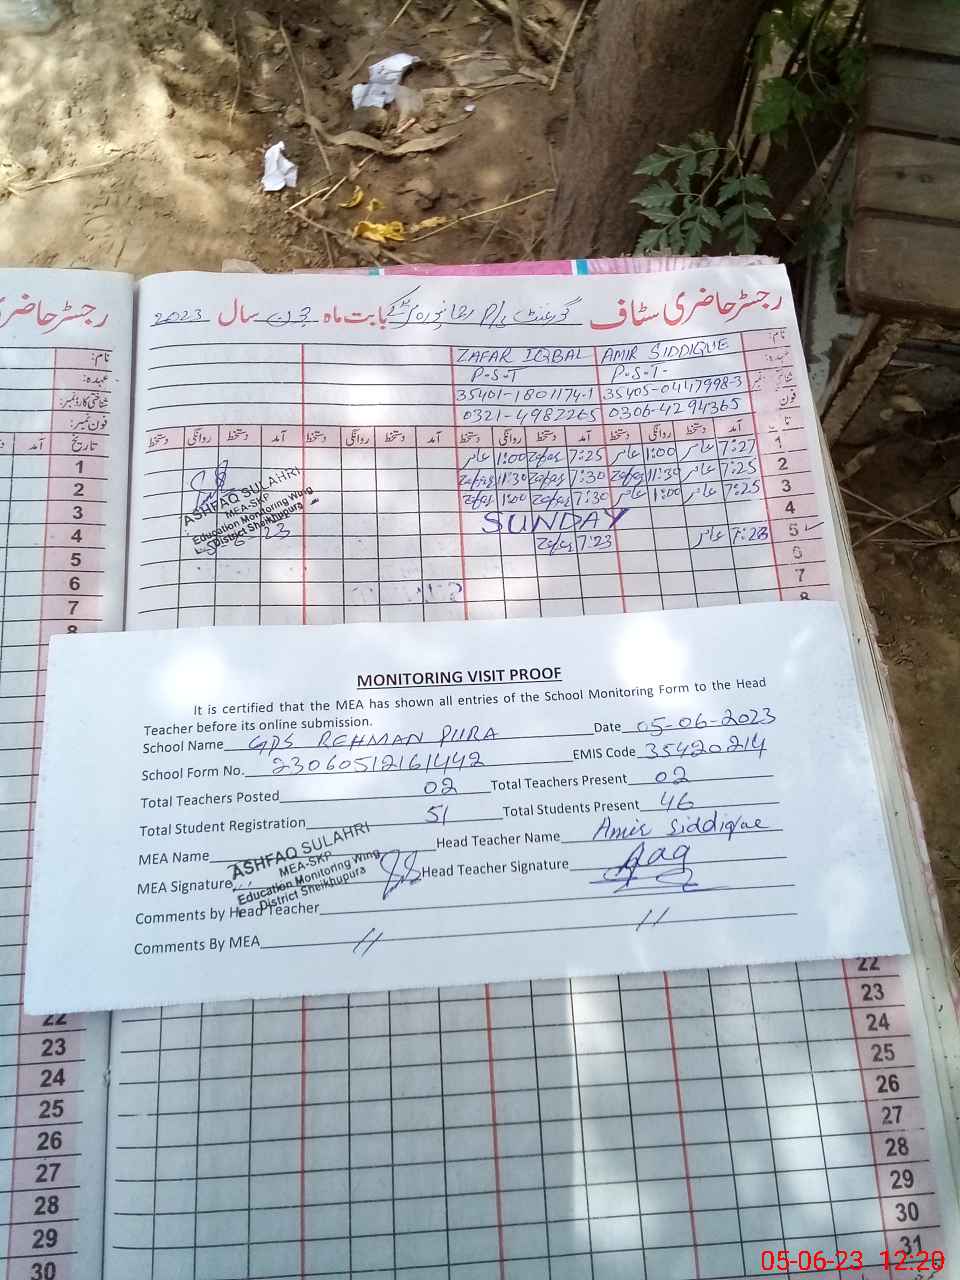 رجسٹر حاضری سٹاف گورنمنٹ P/S بابت ماہ جون سال 2023
رجسٹر حاضری
نام: ZAFAR IQBAL AMIR SIDDIQUE
عہدہ: P-S-T P-S-T-
شناختی کارڈ نمبر: 35401-1801174-1 35405-0447998-3
فون نمبر: 0321-4987265 0306-4294365
تاریخ آمد دستخط روانگی دستخط آمد دستخط روانگی دستخط آمد دستخط روانگی دستخط آمد دستخط روانگی دستخط
1 7:27 عامر 1:00 عامر 7:25 Zafar 1:00 عامر
2 7:25 عامر 11:30 Zafar 7:30 Zafar 11:30 Zafar
3 7:25 عامر 1:00 عامر 7:30 Zafar 1:00 Zafar
4 SUNDAY
5 7:23 عامر 7:23 Zafar
6
7
8
ASHFAQ SULAHRI
MEA-SKP
Education Monitoring Wing
District Sheikhupura
5-6-23
1
2
3
4
5
6
7
8
MONITORING VISIT PROOF
It is certified that the MEA has shown all entries of the School Monitoring Form to the Head
Teacher before its online submission.
School Name GPS REHMAN PURA Date 05-06-2023
School Form No. 23060512161442 EMIS Code 35420214
Total Teachers Posted 02 Total Teachers Present 02
Total Student Registration 51 Total Students Present 46
MEA Name Head Teacher Name Amir Siddique
ASHFAQ SULAHRI
MEA-SKP
Education Monitoring Wing
District Sheikhupura
MEA Signature Head Teacher Signature
Comments by Head Teacher
Comments By MEA
22
23
24
25
26
27
28
29
30
22
23
24
25
26
27
28
29
30
31
05-06-23 12:20